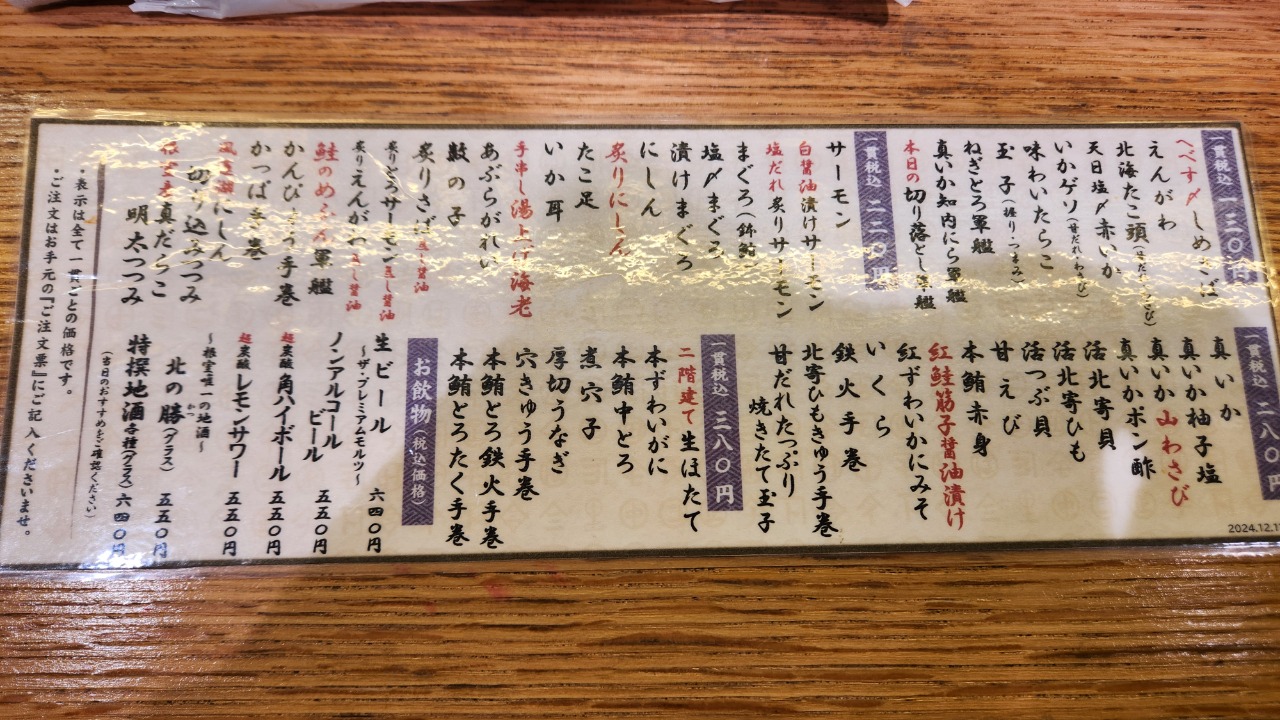 一貫税込 一三〇円
へべす〆しめさば
えんがわ
北海たこ頭
天日塩〆赤いか
いかゲソ(甘だれ・わさび)
味わいたらこ
玉子(握り・つまみ)
ねぎとろ軍艦
真いか知内にら軍艦
本日の切り落とし軍艦
一貫税込 二二〇円
サーモン
白醤油漬けサーモン
塩だれ炙りサーモン
まぐろ
塩〆まぐろ
漬けまぐろ
にしん
炙りにしん
たこ足
いか耳
手串し湯上げ海老
あぶらがれい
数の子
炙りさば 蒸し醤油
炙りとろサーモン 蒸し醤油
炙りえんがわ 蒸し醤油
鮭のめふん軍艦
かんぴょう手巻
かっぱ手巻
にしん
切り込みつつみ
真だらこ
明太つつみ
・表示は全て一貫ごとの価格です。
・ご注文はお手元の『ご注文票』にご記入くださいませ。
一貫税込 二八〇円
真いか
真いか柚子塩
真いか山わさび
真いかポン酢
活北寄貝
活北寄ひも
活つぶ貝
甘えび
本鮪赤身
紅鮭筋子醤油漬け
紅ずわいかにみそ
いくら
鉄火手巻
北寄ひもきゅう手巻
甘だれたっぷり
焼きたて玉子
一貫税込 三八〇円
二階建て生ほたて
本ずわいがに
本鮪中とろ
煮穴子
厚切うなぎ
穴きゅう手巻
本鮪とろ鉄火手巻
本鮪とろたく手巻
お飲物(税込価格)
生ビール
〜ザ・プレミアムモルツ〜 六四〇円
ノンアルコール
ビール 五五〇円
超炭酸角ハイボール 五五〇円
超炭酸レモンサワー 五五〇円
〜根室唯一の地酒〜
北の勝(グラス) 五五〇円
かつ
特撰地酒各種(グラス) 六四〇円
(当日のおすすめをご確認ください)
2024.12.1